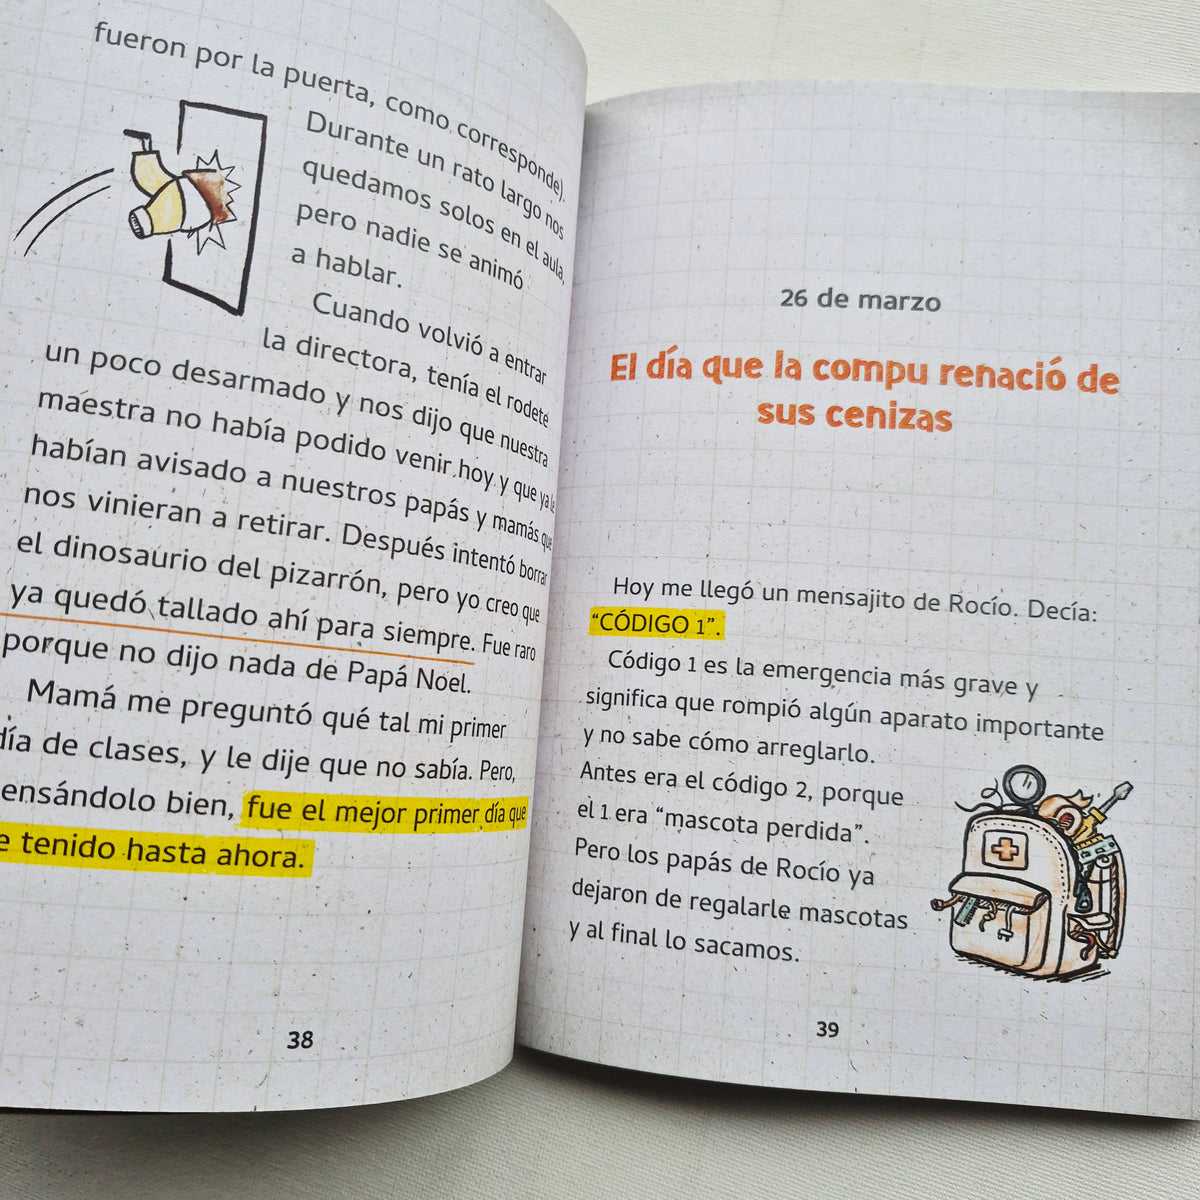 fueron por la puerta, como corresponde).
Durante un rato largo nos
quedamos solos en el aula,
pero nadie se animó
a hablar.
Cuando volvió a entrar
la directora, tenía el rodete
un poco desarmado y nos dijo que nuestra
maestra no había podido venir hoy y que ya le
habían avisado a nuestros papás y mamás que
nos vinieran a retirar. Después intentó borrar
el dinosaurio del pizarrón, pero yo creo que
ya quedó tallado ahí para siempre. Fue raro
porque no dijo nada de Papá Noel.
Mamá me preguntó qué tal mi primer
día de clases, y le dije que no sabía. Pero,
ensándolo bien, fue el mejor primer día que
e tenido hasta ahora.
38
26 de marzo
El día que la compu renació de
sus cenizas
Hoy me llegó un mensajito de Rocío. Decía:
“CÓDIGO 1”.
Código 1 es la emergencia más grave y
significa que rompió algún aparato importante
y no sabe cómo arreglarlo.
Antes era el código 2, porque
el 1 era “mascota perdida”.
Pero los papás de Rocío ya
dejaron de regalarle mascotas
y al final lo sacamos.
39